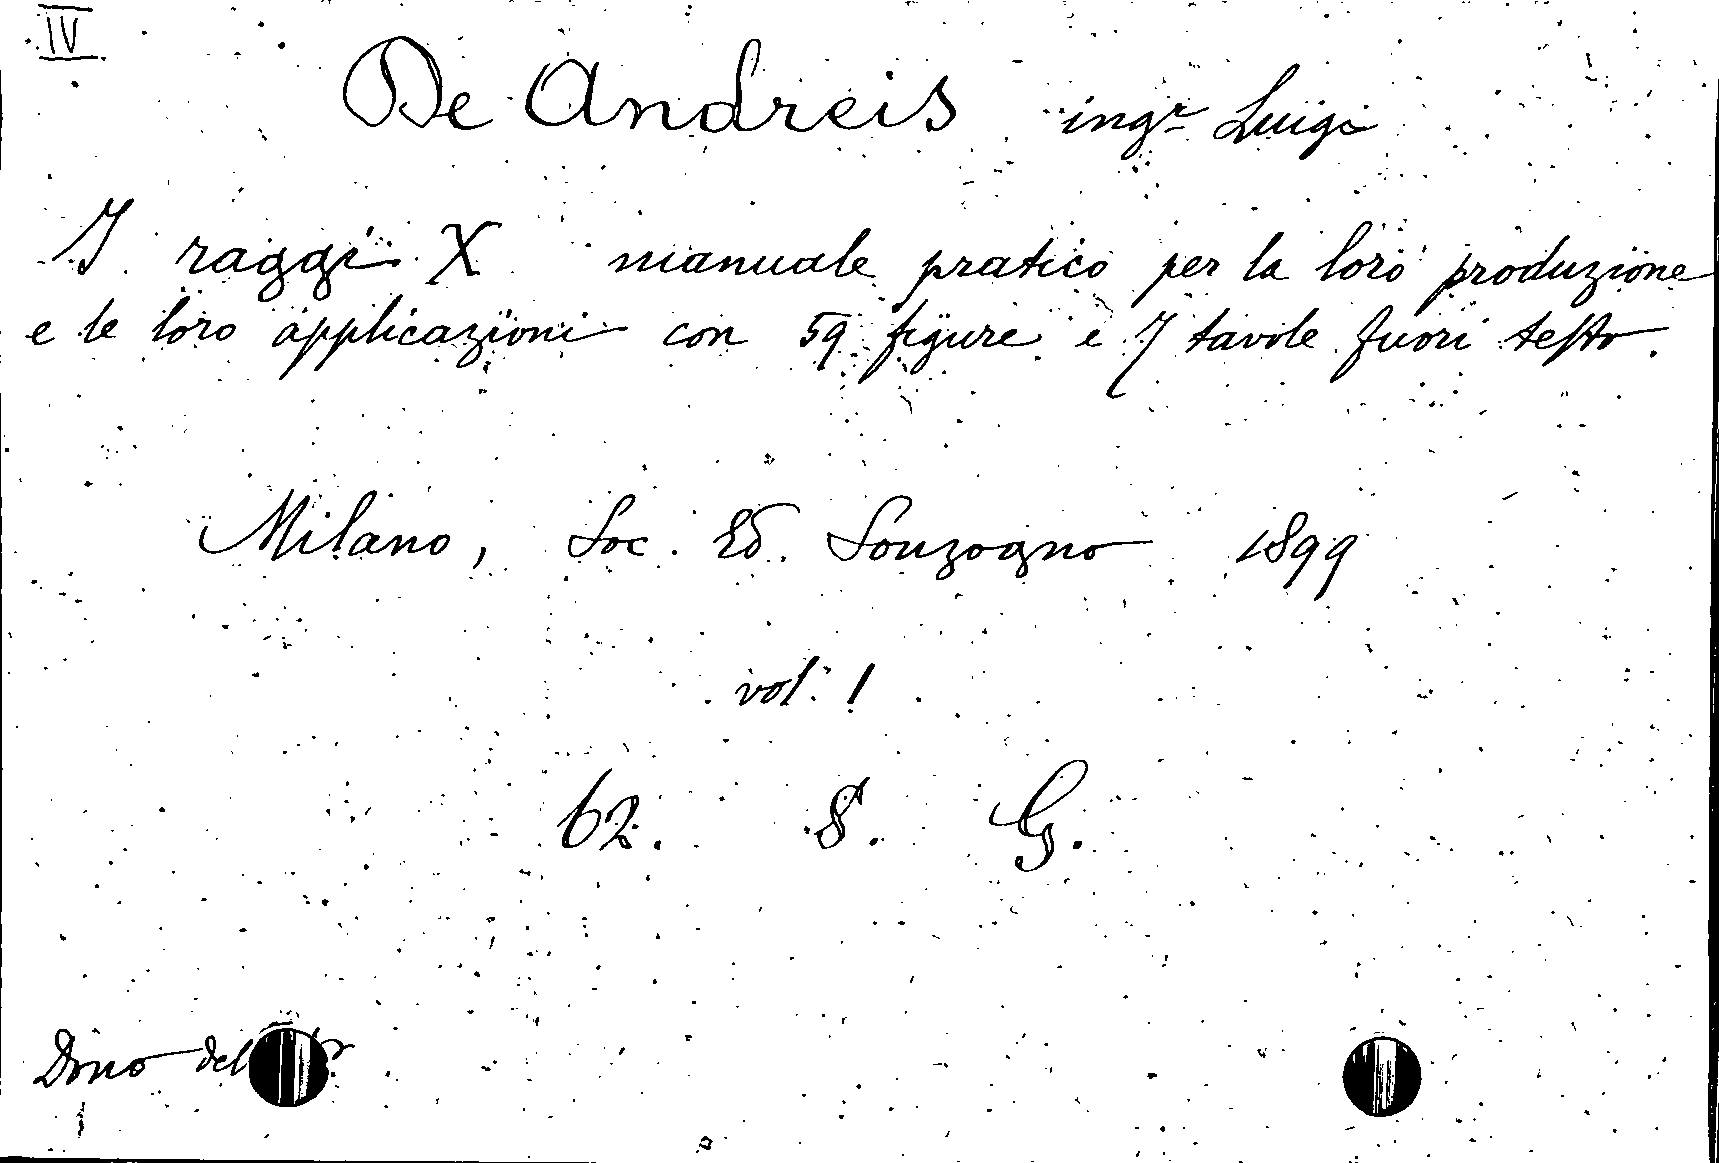 IV
De Andreis ingr Luigi
I raggi X manuale pratico per la loro produzione
e le loro applicazioni con 59 figure e 7 tavole fuori testo.
Milano, Soc. Ed. Sonzogno 1899
vol. 1
62. 8. G.
Dono del